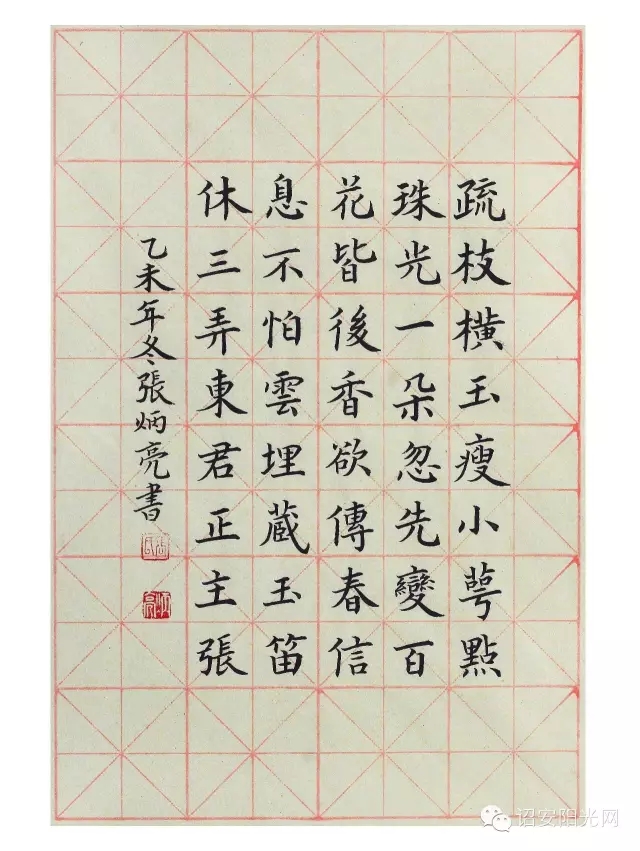 疏枝橫玉瘦小萼點
珠光一朵忽先變百
花皆後香欲傳春信
息不怕雲埋藏玉笛
休三弄東君正主張
乙未年冬張炳亮書
炳亮
诏安阳光网